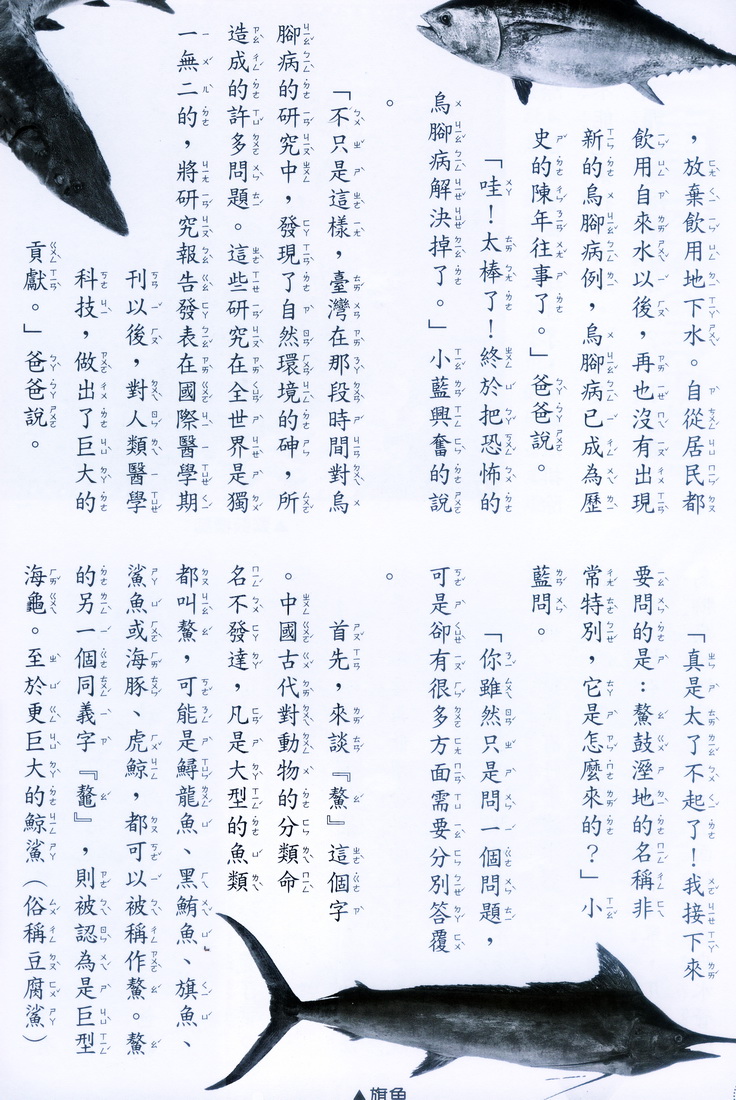 ，放棄飲用地下水。自從居民都
飲用自來水以後，再也沒有出現
新的烏腳病例，烏腳病已成為歷
史的陳年往事了。」爸爸說。
「哇！太棒了！終於把恐怖的
烏腳病解決掉了。」小藍興奮的說
。
「不只是這樣，臺灣在那段時間對烏
腳病的研究中，發現了自然環境的砷，所
造成的許多問題。這些研究在全世界是獨
一無二的，將研究報告發表在國際醫學期
刊以後，對人類醫學
科技，做出了巨大的
貢獻。」爸爸說。
「真是太了不起了！我接下來
要問的是：鰲鼓溼地的名稱非
常特別，它是怎麼來的？」小
藍問。
「你雖然只是問一個問題，
可是卻有很多方面需要分別答覆
。
首先，來談『鰲』這個字
。中國古代對動物的分類命
名不發達，凡是大型的魚類
都叫鰲，可能是鱘龍魚、黑鮪魚、旗魚、
鯊魚或海豚、虎鯨，都可以被稱作鰲。鰲
的另一個同義字『鼇』，則被認為是巨型
海龜。至於更巨大的鯨鯊（俗稱豆腐鯊）
▲旗魚